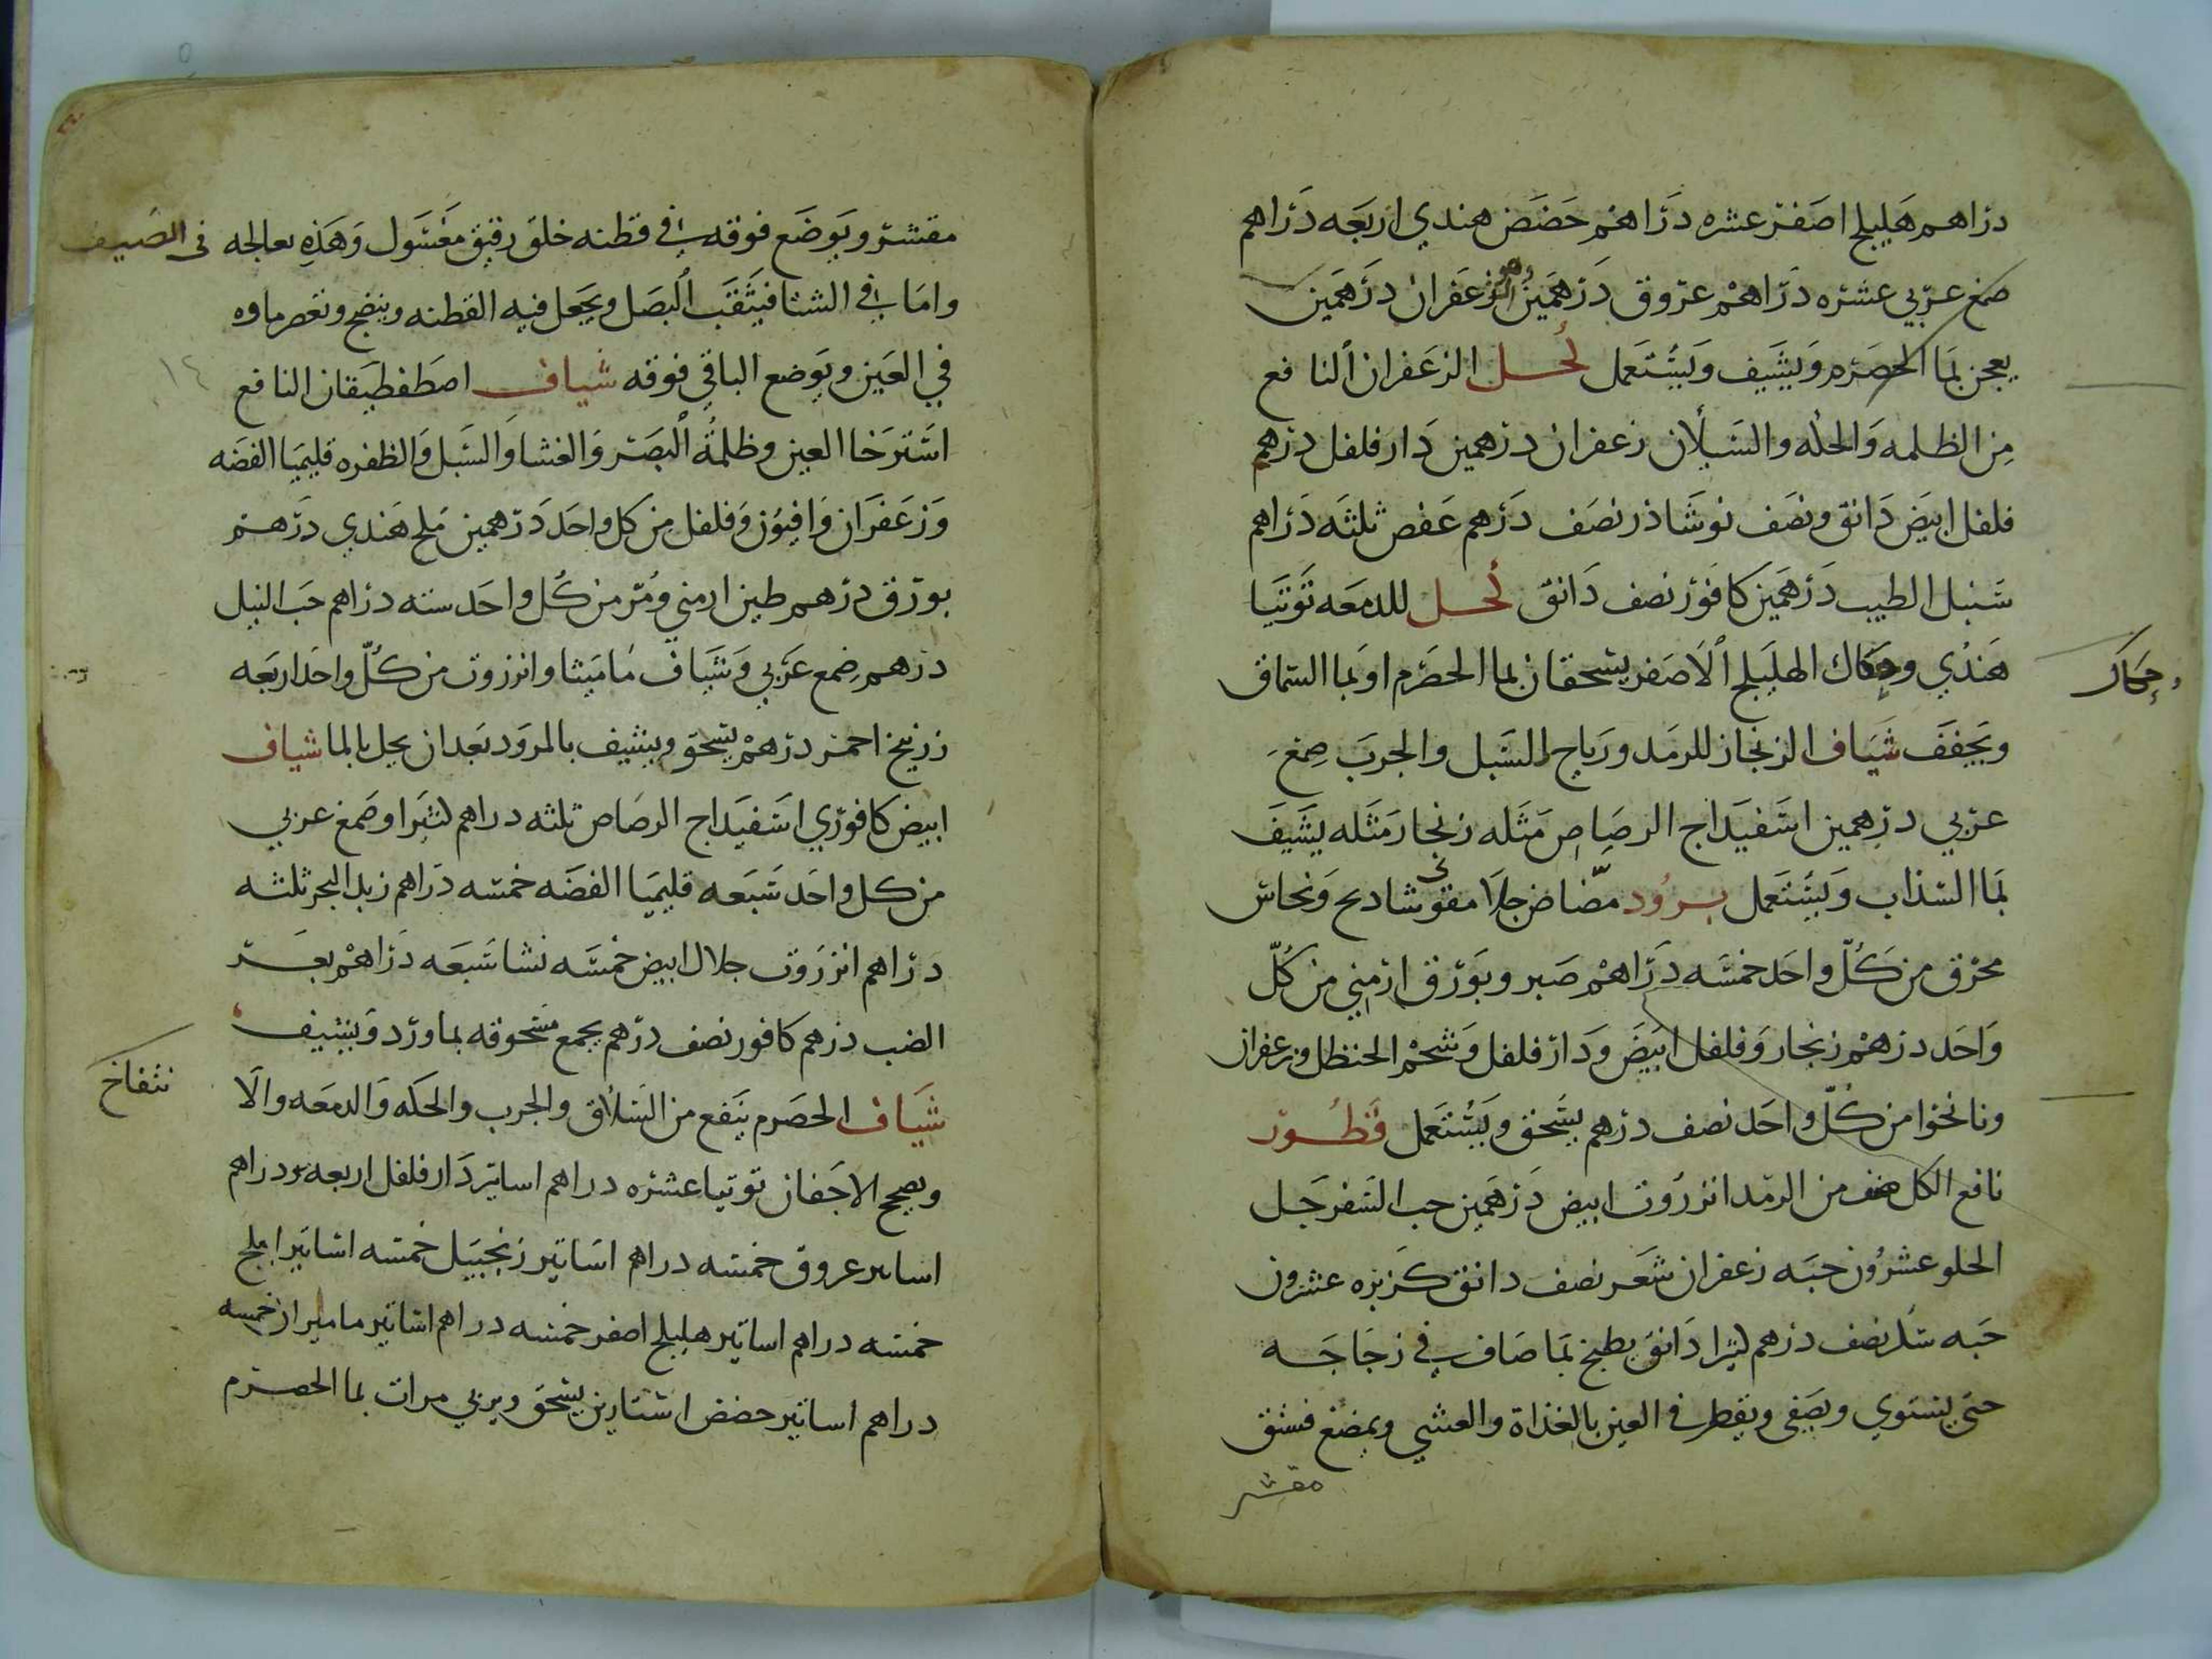 دراهم هليلج اصفر عشره دراهم حضض هندي اربعه دراهم
صمغ عربي عشره دراهم عروق درهمين زعفران درهمين
يعجن بما الحصرم ويشيف ويستعمل كحل الزعفران النافع
من الظلمه والحكه والسبلان زعفران درهمين دارفلفل درهم
فلفل ابيض دانق ونصف نوشاذر نصف درهم عفص ثلثه دراهم
سنبل الطيب درهمين كافور نصف دانق كحل للدمعه توتيا
هندي وحكاك الهليلج الاصفر يسحقان بما الحصرم او بما السماق
وحكاك
ويجفف شياف الزنجار للرمد ورياح السبل والجرب صمغ
عربي درهمين اسفيداج الرصاص مثله زنجار مثله يشيف
بما السذاب ويستعمل برود مضاض جلا مقوي شادنج ونحاس
محرق من كل واحد خمسه دراهم صبر وبورق ارمني من كل
واحد درهم زنجار وفلفل ابيض ودار فلفل وشحم الحنظل وزعفران
ونانخوا من كل واحد نصف درهم يسحق ويستعمل قطور
نافع لكل صنف من الرمد انزروت ابيض درهمين حب السفرجل
الحلو عشرون حبه زعفران شعر نصف دانق كزبره عشرون
حبه سكر نصف درهم كثيرا دانق يطبخ بما صاف في زجاجه
حتى يستوي ويصفى ويقطر في العين بالغداة والعشي ويمضغ فستق
مقشر
مقشر ويوضع فوقه في قطنه خلق رقيق مغسول وهذه معالجه في الصيف
واما في الشتا فيثقب البصل ويجعل فيه القطنه وينضج ويعصر ماوه
في العين ويوضع الباقي فوقه شياف اصطفطيقان النافع
١٤
استرخا العين وظلمة البصر والغشا والسبل والظفره قليميا الفضه
وزعفران وافيون وفلفل من كل واحد درهمين ملح هندي درهم
بورق درهم طين ارمني ومر من كل واحد سته دراهم حب النيل
درهم صمغ عربي وشياف ماميثا وانزروت من كل واحد اربعه
زرنيخ احمر درهم يسحق ويشيف بالمرود بعد ان يحل بالما شياف
ابيض كافوري اسفيداج الرصاص ثلثه دراهم كثيرا وصمغ عربي
من كل واحد سبعه قليميا الفضه خمسه دراهم زبد البحر ثلثه
دراهم انزروت جلال ابيض خمسه نشا سبعه دراهم بعر
الضب درهم كافور نصف درهم يجمع مسحوقه بماورد ويشيف
شياف الحصرم ينفع من السلاق والجرب والحكه والدمعه والا
نتفاخ
ويصحح الاجفان توتيا عشره دراهم اساتير دارفلفل اربعه دراهم
اساتير عروق خمسه دراهم اساتير زنجبيل خمسه اساتير املج
خمسه دراهم اساتير هليلج اصفر خمسه دراهم اساتير ماميران خمسه
دراهم اساتير حضض استارين يسحق ويربي مرات بما الحصرم